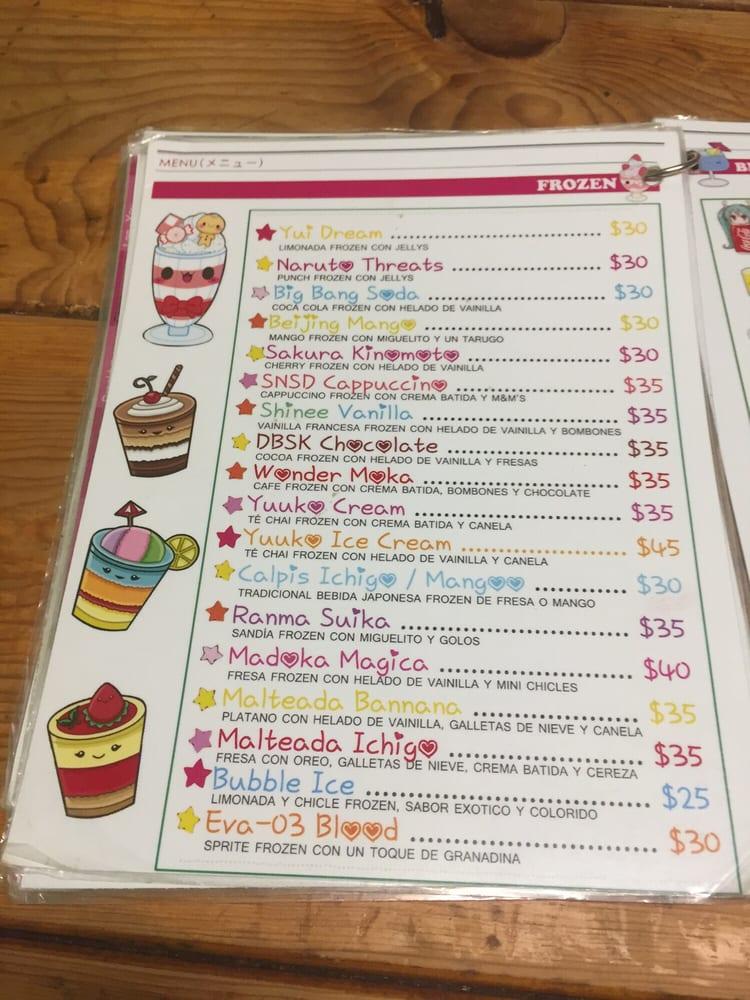 MENU(メニュー)
FROZEN
Yui Dream $30
LIMONADA FROZEN CON JELLYS
Naruto Threats $30
PUNCH FROZEN CON JELLYS
Big Bang Soda $30
COCA COLA FROZEN CON HELADO DE VAINILLA
Beijing Mango $30
MANGO FROZEN CON MIGUELITO Y UN TARUGO
Sakura Kinomoto $30
CHERRY FROZEN CON HELADO DE VAINILLA
SNSD Cappuccino $35
CAPPUCCINO FROZEN CON CREMA BATIDA Y M&M'S
Shinee Vanilla $35
VAINILLA FRANCESA FROZEN CON HELADO DE VAINILLA Y BOMBONES
DBSK Chocolate $35
COCOA FROZEN CON HELADO DE VAINILLA Y FRESAS
Wonder Moka $35
CAFE FROZEN CON CREMA BATIDA, BOMBONES Y CHOCOLATE
Yuuko Cream $35
TÉ CHAI FROZEN CON CREMA BATIDA Y CANELA
Yuuko Ice Cream $45
TÉ CHAI FROZEN CON HELADO DE VAINILLA Y CANELA
Calpis Ichigo / Mangoo $30
TRADICIONAL BEBIDA JAPONESA FROZEN DE FRESA O MANGO
Ranma Suika $35
SANDÍA FROZEN CON MIGUELITO Y GOLOS
Madoka Magica $40
FRESA FROZEN CON HELADO DE VAINILLA Y MINI CHICLES
Malteada Bannana $35
PLATANO CON HELADO DE VAINILLA, GALLETAS DE NIEVE Y CANELA
Malteada Ichigo $35
FRESA CON OREO, GALLETAS DE NIEVE, CREMA BATIDA Y CEREZA
Bubble Ice $25
LIMONADA Y CHICLE FROZEN, SABOR EXOTICO Y COLORIDO
Eva-03 Blood $30
SPRITE FROZEN CON UN TOQUE DE GRANADINA